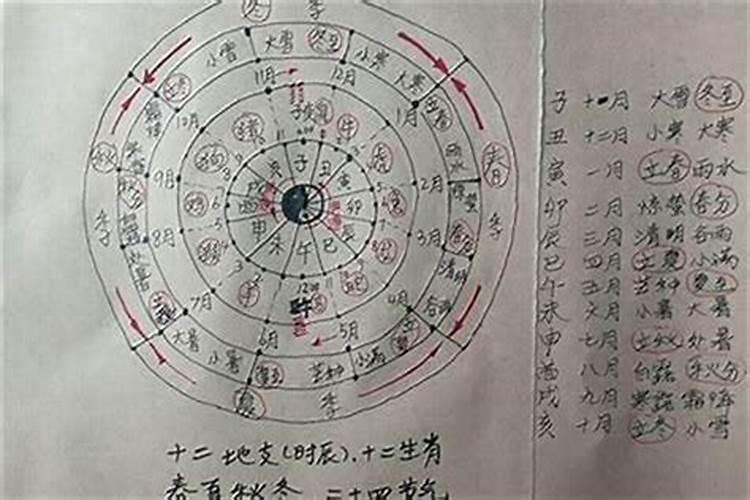 冬 季
小雪 大雪 冬至 小寒 大寒
11月 12月
立冬 立春
10月 1月
子 丑 寅 卯 辰 巳 午 未 申 酉 戌 亥
鼠 牛 虎
猪 狗
秋 季
春 季
9月 2月
雨水
惊蛰
秋分 春分
8月 3月
清明
谷雨
7月 4月
大暑 小暑 夏至 芒种 小满
6月 5月
夏 季
子 十一月 大雪 冬至
丑 十二月 小寒 大寒
寅 一月 立春 雨水
卯 二月 惊蛰 春分
辰 三月 清明 谷雨
巳 四月 立夏 小满
午 五月 芒种 夏至
未 六月 小暑 大暑
申 七月 立秋 处暑
酉 八月 白露 秋分
戌 九月 寒露 霜降
亥 十月 立冬 小雪
十二地支(时辰)、十二生肖
春夏秋冬 二十四节气